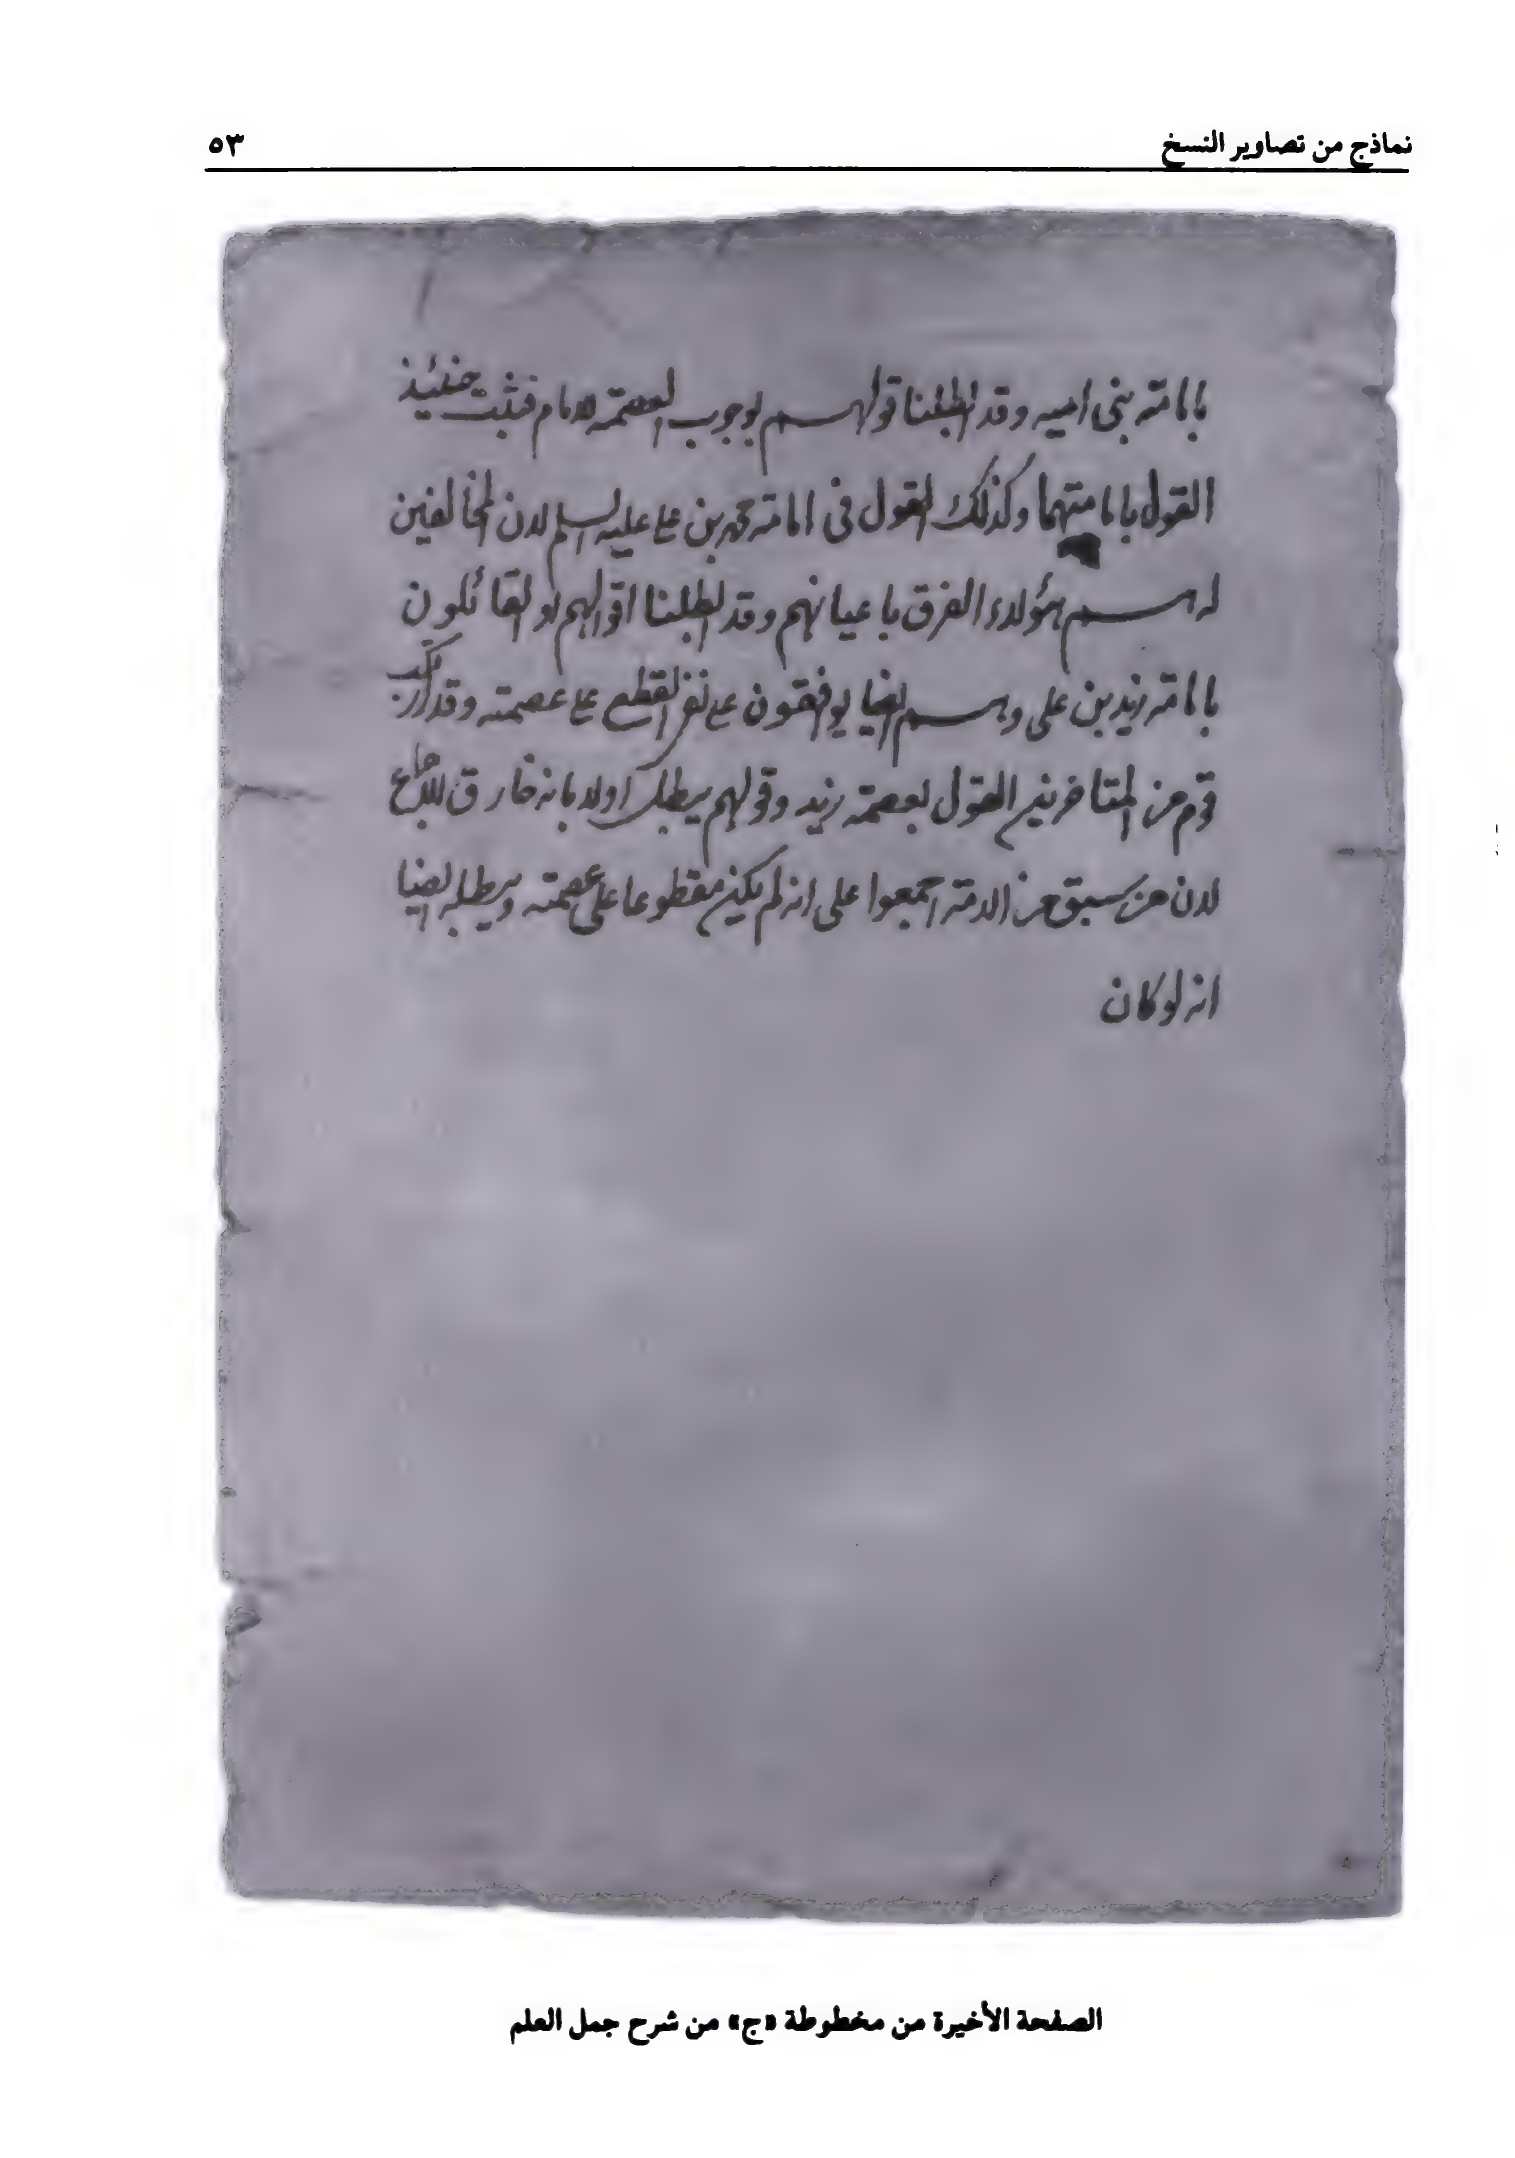 نماذج من تصاوير النسخ ٥٣
بامامته بنى اميه وقد ابطلنا قولهم بوجوب العصمة للامام فثبت حينئيذ
القول بامامتهما وكذلك القول فى امامته محمد بن على عليه السلم لان المخالفين
لهم هؤلاء الفرق باعيانهم وقد ابطلنا اقوالهم لو القائلون
بامامته زيد بن على وهم ايضا يوافقون على نفى القطع على عصمته وقد
قوم من المتاخرين القول بعصمته زيد وقولهم يبطل اولا بانه خارق للاجماع
لان من سبق من الامته اجمعوا على انه لم يكن مقطوعا على عصمته ويبطله ايضا
انه لو كان
الصفحة الأخيرة من مخطوطة «ج» من شرح جمل العلم